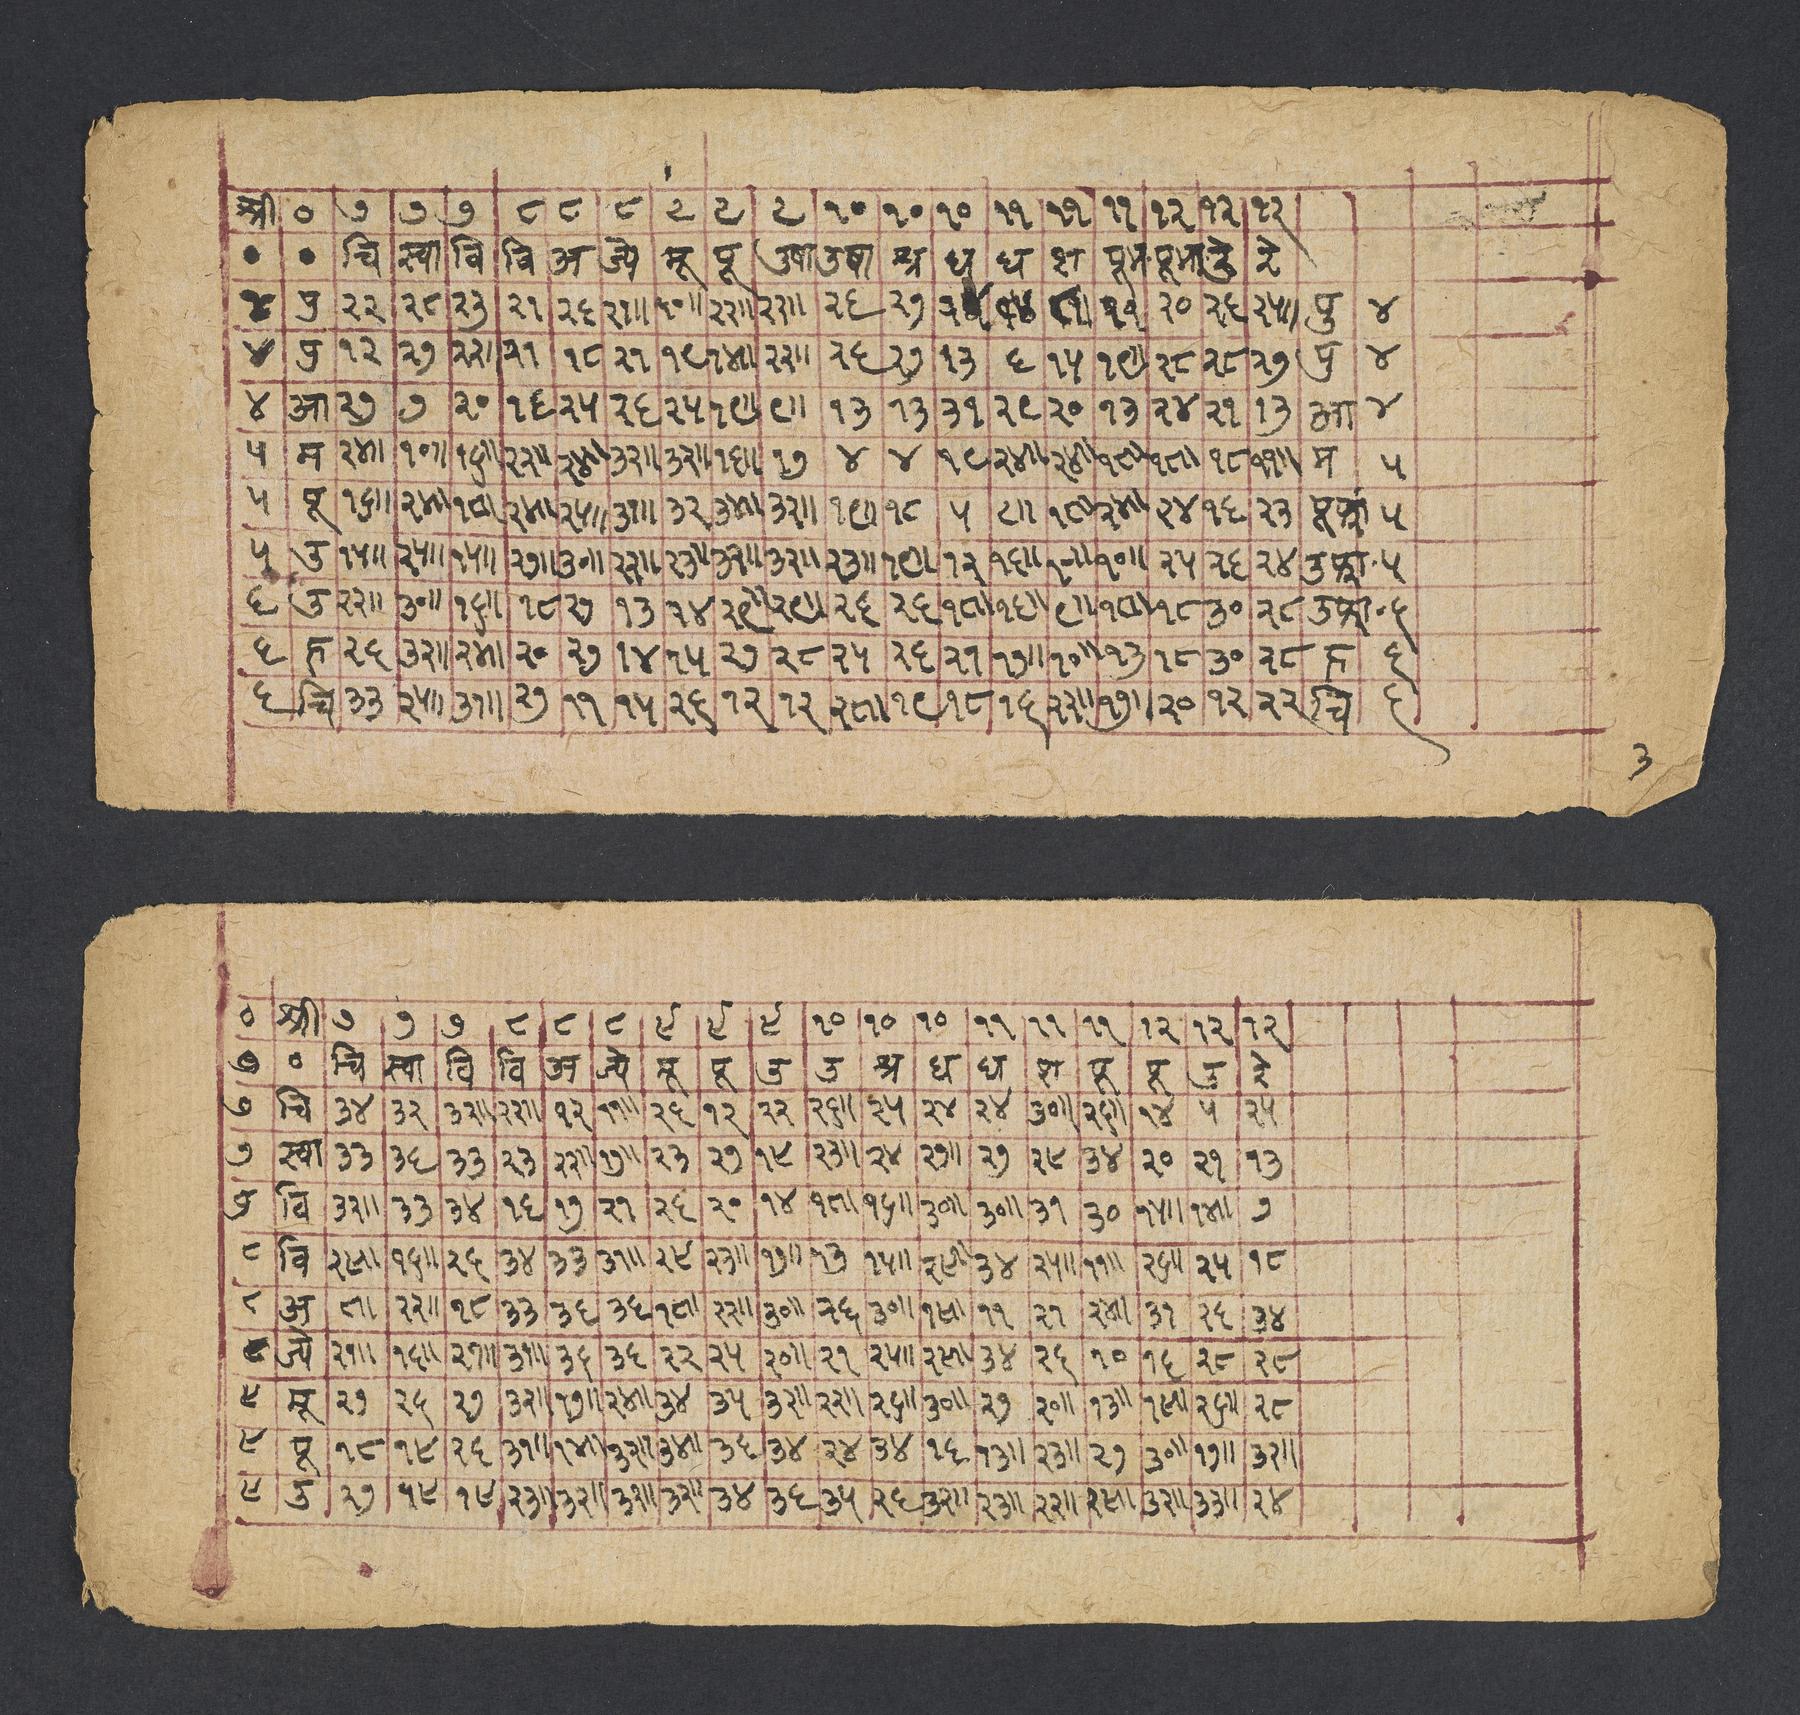 स्त्री ० ७ ७ ७ ८ ८ ८ ९ ९ ९ १० १० १० ११ ११ ११ १२ १२ १२
० ० चि स्वा वि वि अ ज्ये मू पू उषा उषा श्र ध ध श पूभ पूभा उ रे
४ पु २२ २८ २३ २१ २६ २१॥ २२॥ २२॥ २६ २७ २० २६ २५॥ पु ४
४ पु १२ २७ २२॥ २१ १८ २१ १९ १४॥ २२॥ २६ २७ १३ ६ १५ १९॥ २८ २८ २७ पु ४
४ आ २७ ७ २० १६ २५ २६ २५ १९॥ ९॥ १३ १३ ३१ २९ २० १३ २४ २१ १३ आ ४
५ म २४॥ १०॥ १६॥ २२॥ २४॥ ३२॥ ३२॥ १६॥ १७ ४ ४ १९ २४॥ २४॥ १८॥ १८॥ १८ ११॥ म ५
५ पू १६॥ २४॥ १८॥ २४॥ २५॥ ३१॥ ३२ ३४॥ ३२॥ १९॥ १८ ५ ९॥ १८॥ २४॥ २४ १६ २३ पूफा ५
५ उ १५॥ २५॥ १५॥ २७॥ ३०॥ २२॥ २३॥ ३२॥ ३२॥ २३॥ १९॥ १२ १६॥ १०॥ १०॥ २५ २६ २४ उफा ५
६ उ २२॥ ३०॥ १६॥ १८ २७ १३ २४ २९॥ २९॥ २६ २६ १८॥ १६॥ ९॥ १८॥ १८ ३० २८ उफा ६
६ ह २६ ३२॥ २४॥ २० २७ १४ १५ २७ २८ २५ २६ २१ १७॥ १०॥ १३ १८ ३० २८ ह ६
६ चि ३३ २५॥ ३१॥ २७ ११ १५ २६ १२ १२ २८॥ १९ १८ १६ २२॥ १७॥ २० १२ २२ चि ६
३
० स्त्री ७ ७ ७ ८ ८ ८ ९ ९ ९ १० १० १० ११ ११ ११ १२ १२ १२
७ ० चि स्वा वि वि अ ज्ये मू पू उ उ श्र ध ध श पू पू उ रे
७ चि ३४ ३२ ३२॥ २२॥ १२ ११॥ २६ १२ २२ २६॥ २५ २४ २४ ३०॥ २६॥ १४ ५ २५
७ स्वा ३३ ३६ ३३ २३ २२॥ १७॥ २३ २७ १९ २३॥ २४ २७॥ २७ २९ ३४ २० २१ १३
वि ३२॥ ३३ ३४ १६ १७ २१ २६ २० १४ १८॥ १६॥ ३०॥ ३०॥ ३१ ३० १५॥ १४॥ ७
८ वि २९॥ १६॥ २६ ३४ ३३ ३१॥ २९ २३॥ १७॥ १३ १५॥ २९॥ ३४ २५॥ ११॥ २६॥ २५ १८
८ अ ८॥ २२॥ १८ ३३ ३६ ३६ १८॥ २२॥ ३०॥ २६ ३०॥ १९॥ ११ २१ २४॥ ३१ २६ ३४
८ ज्ये २१॥ १६॥ २१॥ ३१॥ ३६ ३६ २२ २५ २०॥ २१ २५॥ २९॥ ३४ २६ १० १६ २८ २८
९ मू २७ २६ २७ ३२॥ १७॥ २४॥ ३४ ३५ ३२॥ २२॥ २६॥ ३०॥ २७ २०॥ १३॥ १९॥ २६॥ २८
९ पू १८ १९ २६ ३१॥ १४॥ ३२॥ ३४॥ ३६ ३४ २४ ३४ १६ १३॥ २३॥ २७ ३०॥ १७॥ ३२॥
९ उ २७ १९ १९ २३॥ ३२॥ ३२॥ ३२॥ ३४ ३६ ३५ २६ ३२॥ २३॥ २२॥ २९॥ ३२॥ ३३॥ २४